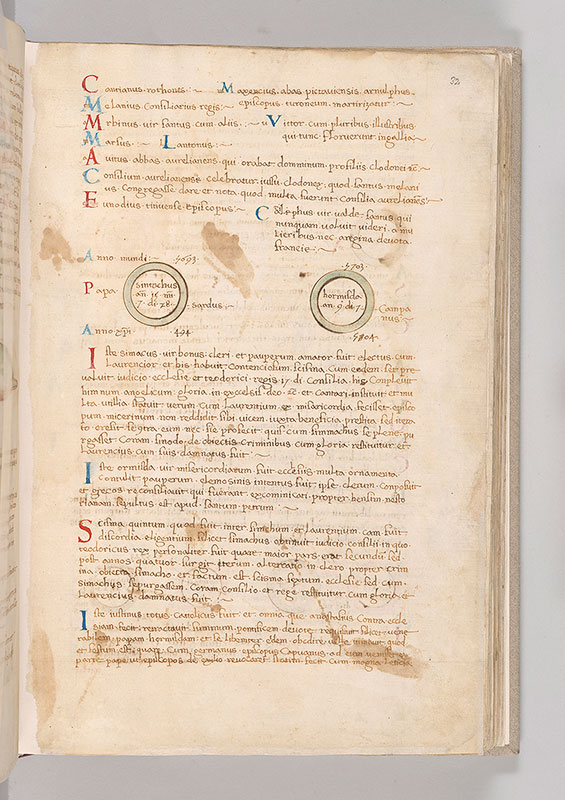 32
Cantianus. rothoṅts:
Maxencius. abas. pictaviensis. arnulphus.
Melanius. Consiliarius regis:
episcopus. turoneum. martirizatur:
Mrbinus. vir santus. cum. aliis.
Victor. cum. pluribus. illustribus.
qui. tunc. floruerunt. ingallia
Marsus.
Lantonus:
Avitus. abbas. aurelianens. qui. orabat. domminum. profiliis. clodonei
Consilium. aurelianense. Celebratur. iussu. clodoney. quod. santus. melani
us. Congregasse. dare. et nota. quod. multa. fuerunt. Consilia. aurelianens
Eunodius. tinuense. episcopus
vir. valde. santus. qui
nunquam. voluit. videri. a mu
lieribus. nec. aregina. devota.
francie.
Anno mundi:
5693.
5703.
Papa
simachus
an. 15. m.
7. di. 28.
sardus
hormisda
an. 9. di. 7.
Campa
nus:
Anno. xpi.
494
504
Iste. simacus. vir. bonus. cleri. et. pauperum. amator. fuit. electus. cum.
Laurencior. et. bis. habuit. Contenciosum. scisma. Cum. eodem. set. pre
valuit. iudicio. ecclesie. et teodorici. regis. 17. di. Consilia. hic. Conplevit
himnum. angelicum. gloria. in. excelsis. deo. et. cantari. instituit. et mu
lta. utilia. statuit. verum. cum. Laurentium. ex. misaricordia. fecisset. episco
pum. nucerinum. non. reddidit. sibi. vicem. iuxta. beneficia. prestita. sed. itera
to. erexit. se. contra. eum. nec. sic. profecit. quis. cum. simmachus. se. plene. pu
rgasset. Coram. sinodo. de. obiectis. Criminibus. cum. gloria. restituitur. et
Laurencius. cum. suis. damnatus. fuit
Iste. ormisda. vir. misericordiarum. fuit. ecclesiis. multa. ornamenta
Contulit. pauperum. elemosinis. intentus. fuit. ipse. clerum. conposuit
et grecos. reconsiliavit. qui. fuerant. excominicati. propter.
sepultus. est. apud. santum. petrum
Scisma. quintum. quod. fuit. inter. simachum. et. Laurentium. cam. fuit
discordia. eligentium. silicet. simachus. obtinuit. iudicio. consilii. in quo.
teodoricus. rex. personaliter. fuit. quare. maior. pars. erat. secundum. sed.
post. annos. quatuor. surgit. iterum. altercatio. in. clero. propter. crim
ina. obiecta. simacho. et. factum. est. scisma. sextum. ecclesie. sed. cum.
simachus. sepurgassem. Coram. Consilio. et. rege. restituitur. cum. gloria. et
Laurencius. damnatus. fuit
Iste. iustinus. totus. Catolicus. fuit. et. omnia. que. anastasius. Contra. eccle
siam. fecit. retractavit. summum. pontificem. devote. silicet. vene
rabilem. papam. hormisdam. et. se. libenter. eidem. obedire.
Cum. germanus. episcopus. Capuanus. ad. eum.
parte. pape. ut. episcopos. de. exilio. revocaret. statim. fecit. cum. magna. leticia